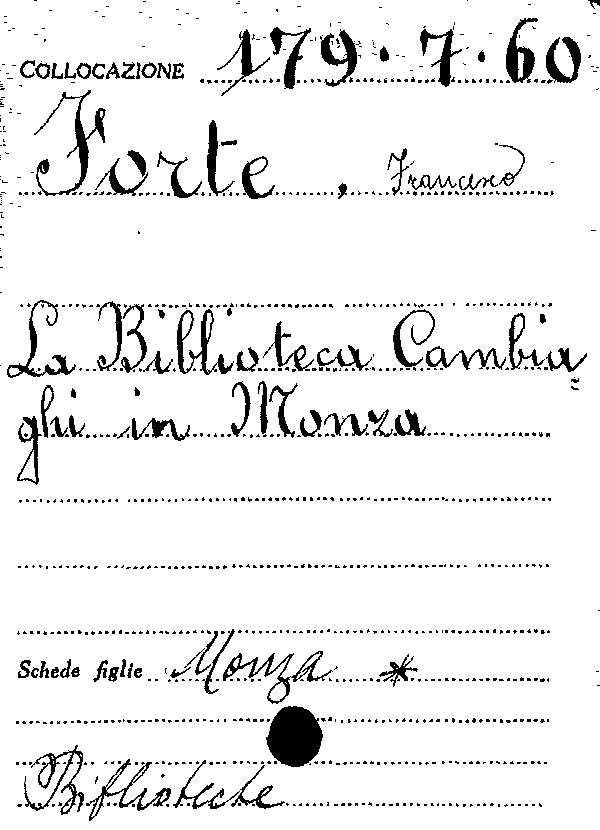 COLLOCAZIONE 179.7.60
Forte, Francesco
La Biblioteca Cambia=
ghi in Monza
Schede figlie Monza *
Biblioteche